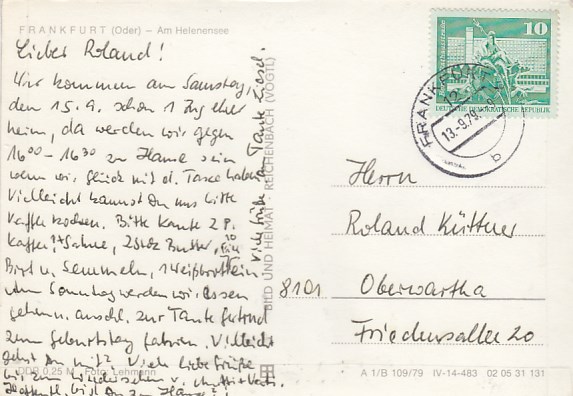 FRANKFURT (Oder) – Am Helenensee
Lieber Roland!
Wir kommen am Samstag,
den 15.9. schon 1 Zug eher
heim, da werden wir gegen
16⁰⁰ - 16³⁰ zu Hause sein
wenn wir Glück mit d. Taxe haben
Vielleicht kannst Du uns bitte
Kaffee kochen. Bitte kaufe 2 P.
Kaffee, Sahne, 2 Stck Butter, 10
Brot u. Semmeln, 1 Weißbrot
Am Sonntag werden wir Essen
gehen u. anschl. zur Tante Gertrud
zum Geburtstag fahren. Vielleicht
gehst Du mit? Viele liebe Grüße
bis zum Wiedersehen v. Mutti + Vati.
Hoffentl. bist Du zu Hause?!
Viele Grüße an Tante Liesel.
BILD UND HEIMAT · REICHENBACH (VOGTL)
10
DEUTSCHE DEMOKRATISCHE REPUBLIK
FRANKFURT
12
13.-9.79
b
Herrn
Roland Küttner
8101 Oberwartha
Friedensallee 20
DDR 0,25 M Foto: Lehmann
A 1/B 109/79 IV-14-483 02 05 31 131